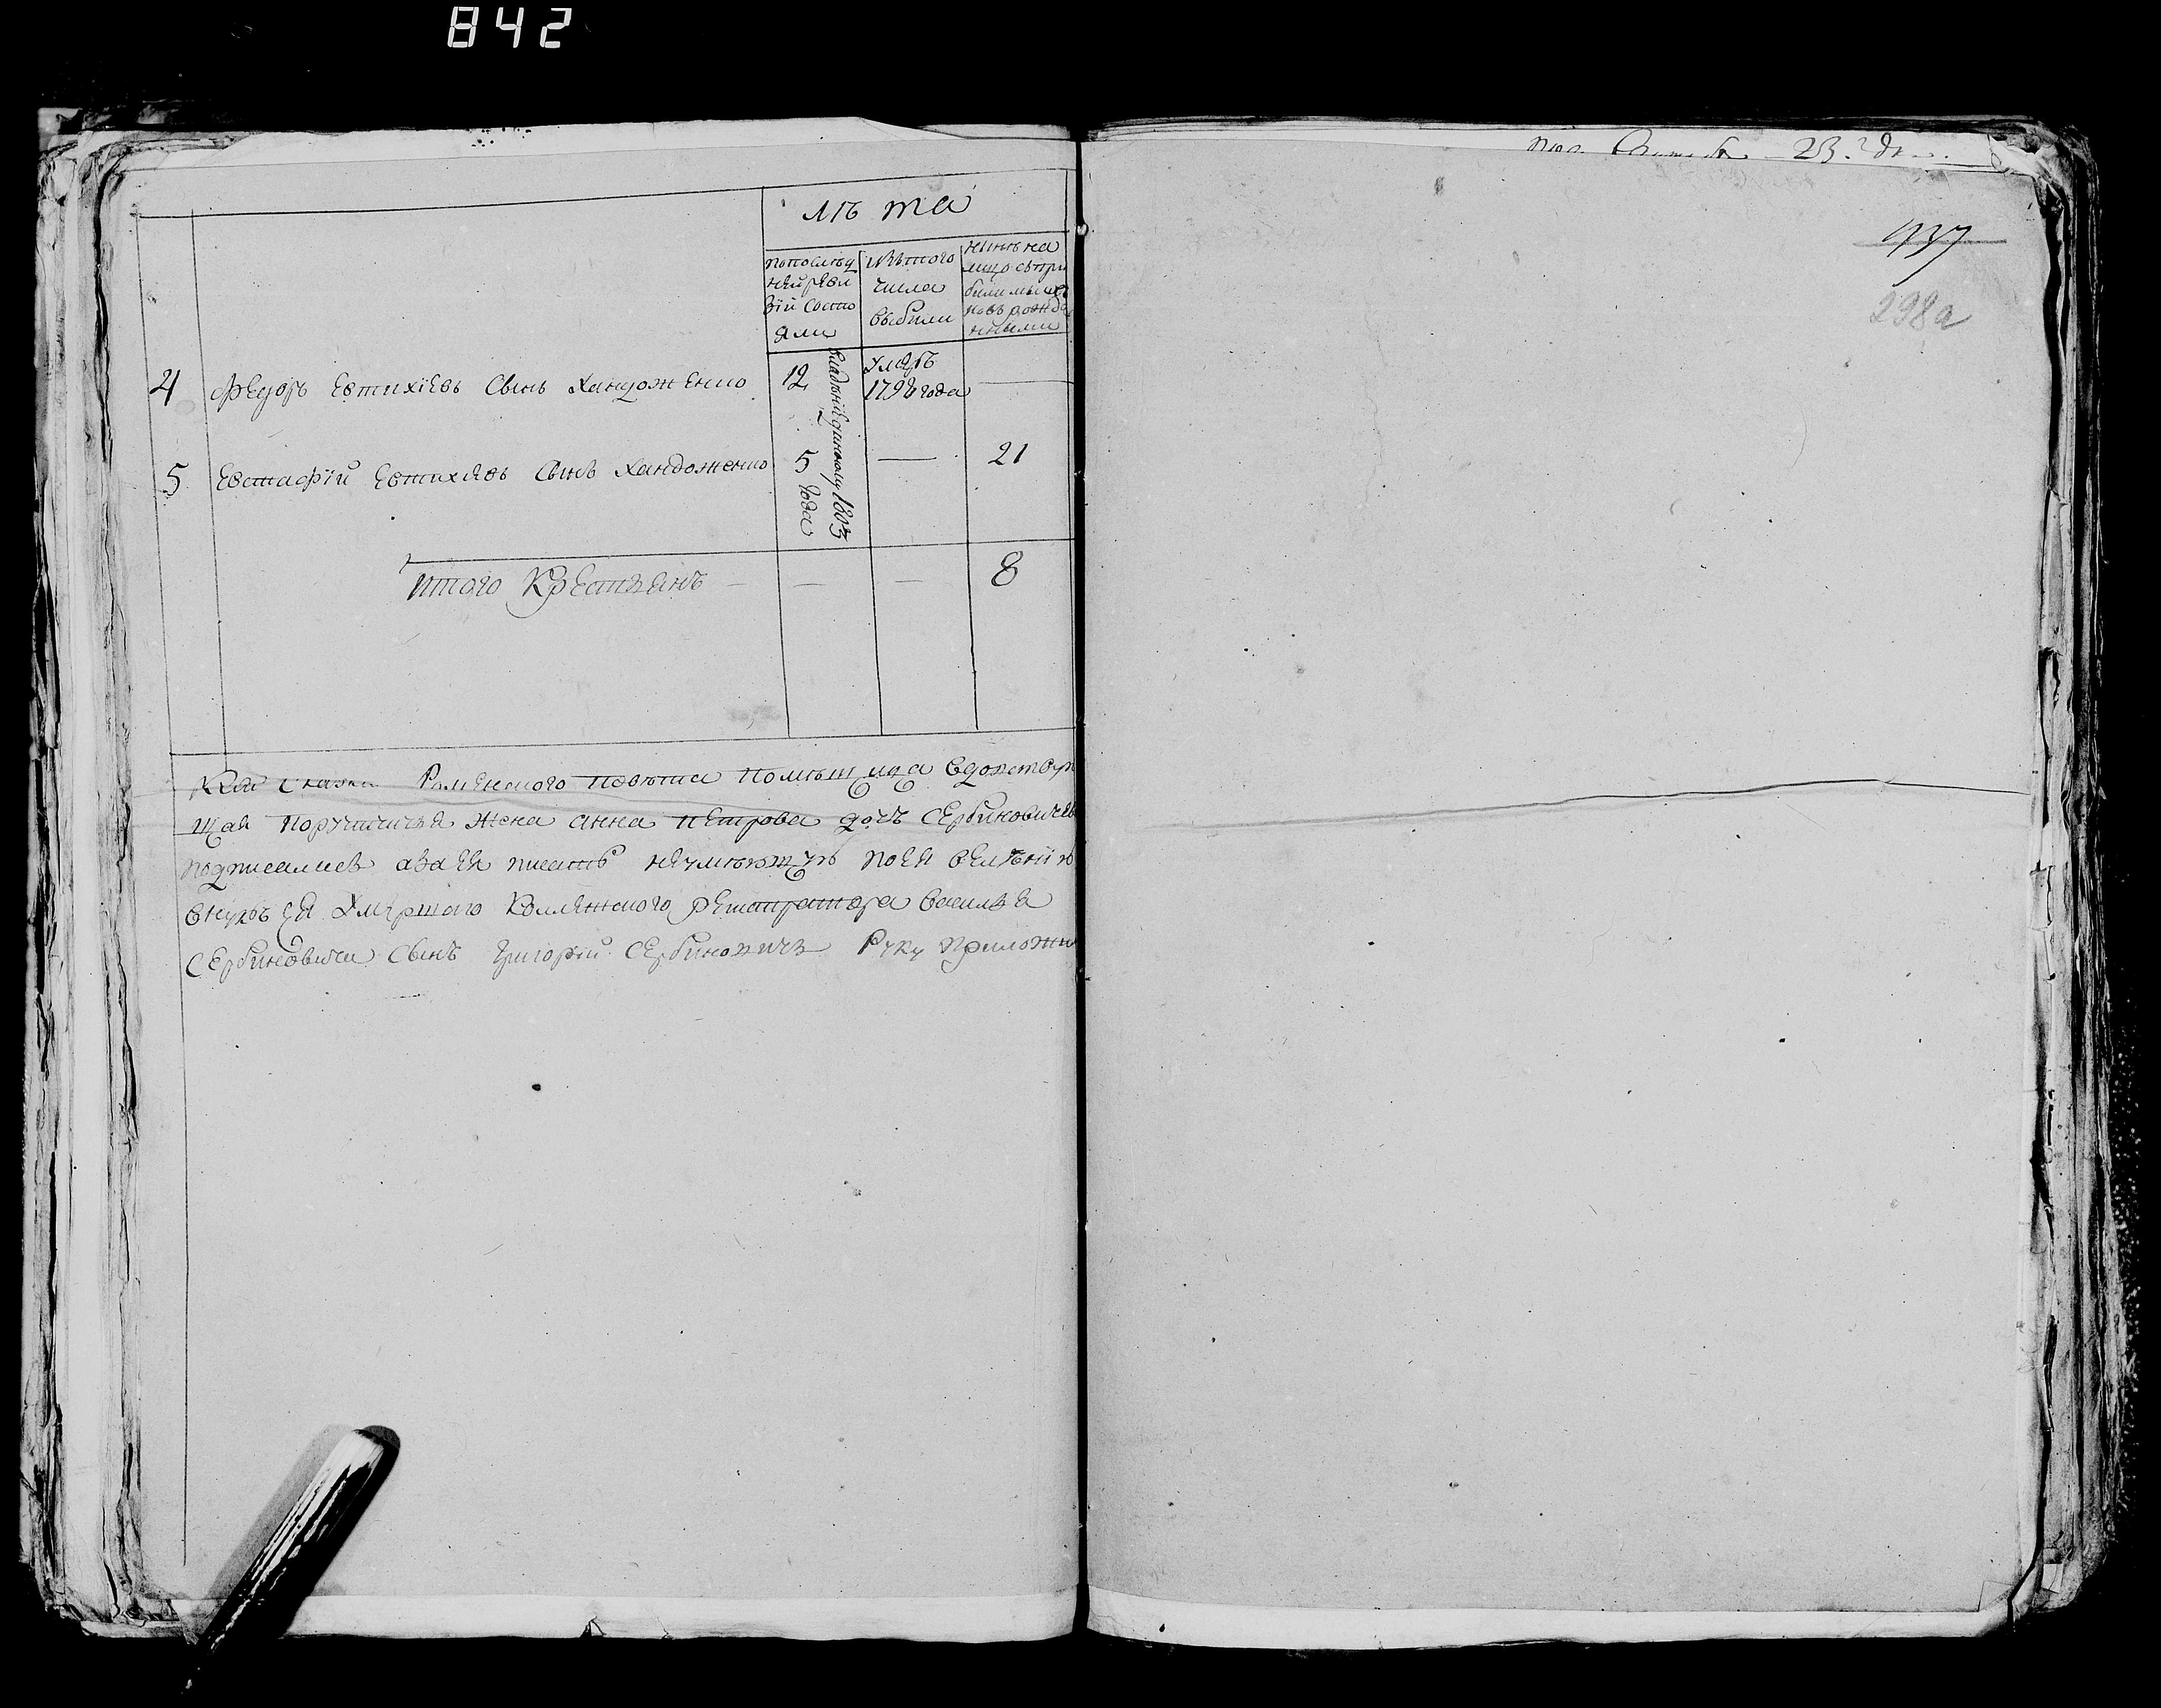 842
лѣта
попослѣд
ней реви
зїи состо
яли
Изътого
числа
выбыли
нынѣ на
лицо съпри
былими и
новъ рожд
енными
4 Федоръ Евтихїевъ сынъ Хандоженко 12 умеръ
1798 года —
5 Евстафїй Евтихїевъ сынъ Хандоженко 5 — 21
1803
года
итого Крестьянъ — — — 8
Кѣй скаски Роменского повѣта помѣщица вдовству
щая порутчичья жена анна петрова дочь Сербиновичева
подписалась аза ея писать неумѣющую по ея велѣнїю
внукъ ея умершаго Коллежского регистратора василья
Сербиновича сынъ григорїй Сербиновичъ руку приложи
23
937
298а